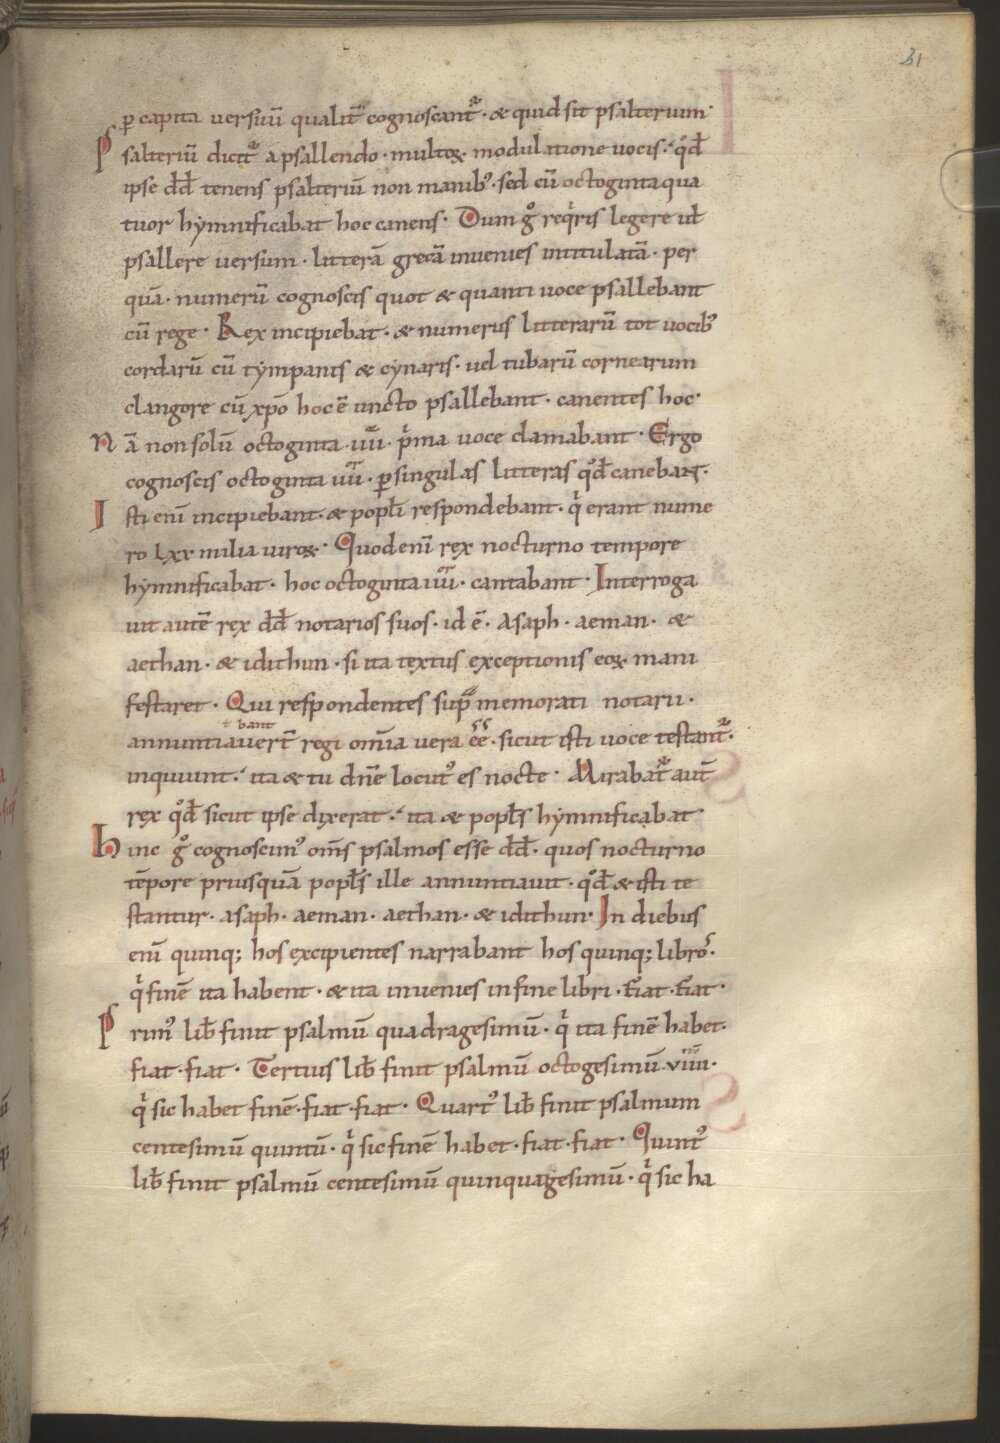 21
ꝑ capita uersuū qualit̄ cognoscant᷑ · & quid sit psalterium ·
Psalteriū dicit᷑ a psallendo · multoꝝ modulatione uocis · qđ
ipse dd̄ tenens psalteriū non manibꝰ · sed cū octoginta qua
tuor hymnificabat hoc canens · Dum gͦ reqͥris legere ul̄
psallere uersum · litterā grecā inuenies intitulatā · per
quā · numerū cognoscis quot & quanti uoce psallebant
cū rege · Rex incipiebat · & numerus litterarū tot uocibꝰ
cordarū cū tympanis & cynaris · uel tubarū cornearum
clangore cū xp̄o hoc ē uncto psallebant · canentes hoc ·
Nā non solū octoginta iiii · pͥma uoce clamabant · Ergo
cognoscis octoginta iiii · ꝑ singulas litteras qđ canebant ·
Isti enī incipiebant · & popl̄i respondebant · qͥ erant nume
ro lxx milia uiroꝝ · Quod enī rex nocturno tempore
hymnificabat · hoc octoginta iiii · cantabant · Interroga
uit autē rex dd̄ notarios suos · id ē · asaph · aeman · &
aethan · & idithun · si ita textus exceptionis eoꝝ mani
festaret · Qui respondentes sup̄ memorati notarii ·
ł bant
annuntiauert̄ regi om̄ia uera ēē · sicut isti uoce testant᷑ ·
inquiunt · ita & tu dn̄e locutꝰ es nocte · Mirabat᷑ aut̄
rex qđ sicut ipse dixerat · ita & popl̄s hymnificabat
Hinc gͦ cognoscimꝰ om̄s psalmos esse dd̄ · quos nocturno
tēpore priusquā popl̄s ille annuntiauit · qđ & isti te
stantur · asaph · aeman · aethan · & idithun · In diebus
enī quinq; hos excipientes narrabant hos quinq; libros ·
qͥ finē ita habent · & ita inuenies in fine libri · fiat · fiat ·
Primꝰ lib̄ finit psalmū quadragesimū · qͥ ita finē habet ·
fiat · fiat · Tertius lib̄ finit psalmū octogesimū · viiii ·
qͥ sic habet finē · fiat · fiat · Quartꝰ lib̄ finit psalmum
centesimū quintū · qͥ sic finē habet · fiat · fiat · Quintꝰ
lib̄ finit psalmū centesimū quinquagesimū · qͥ sic ha